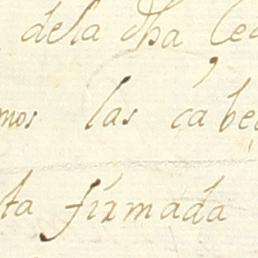 dela dha Ce
mos las cabe
ta firmada